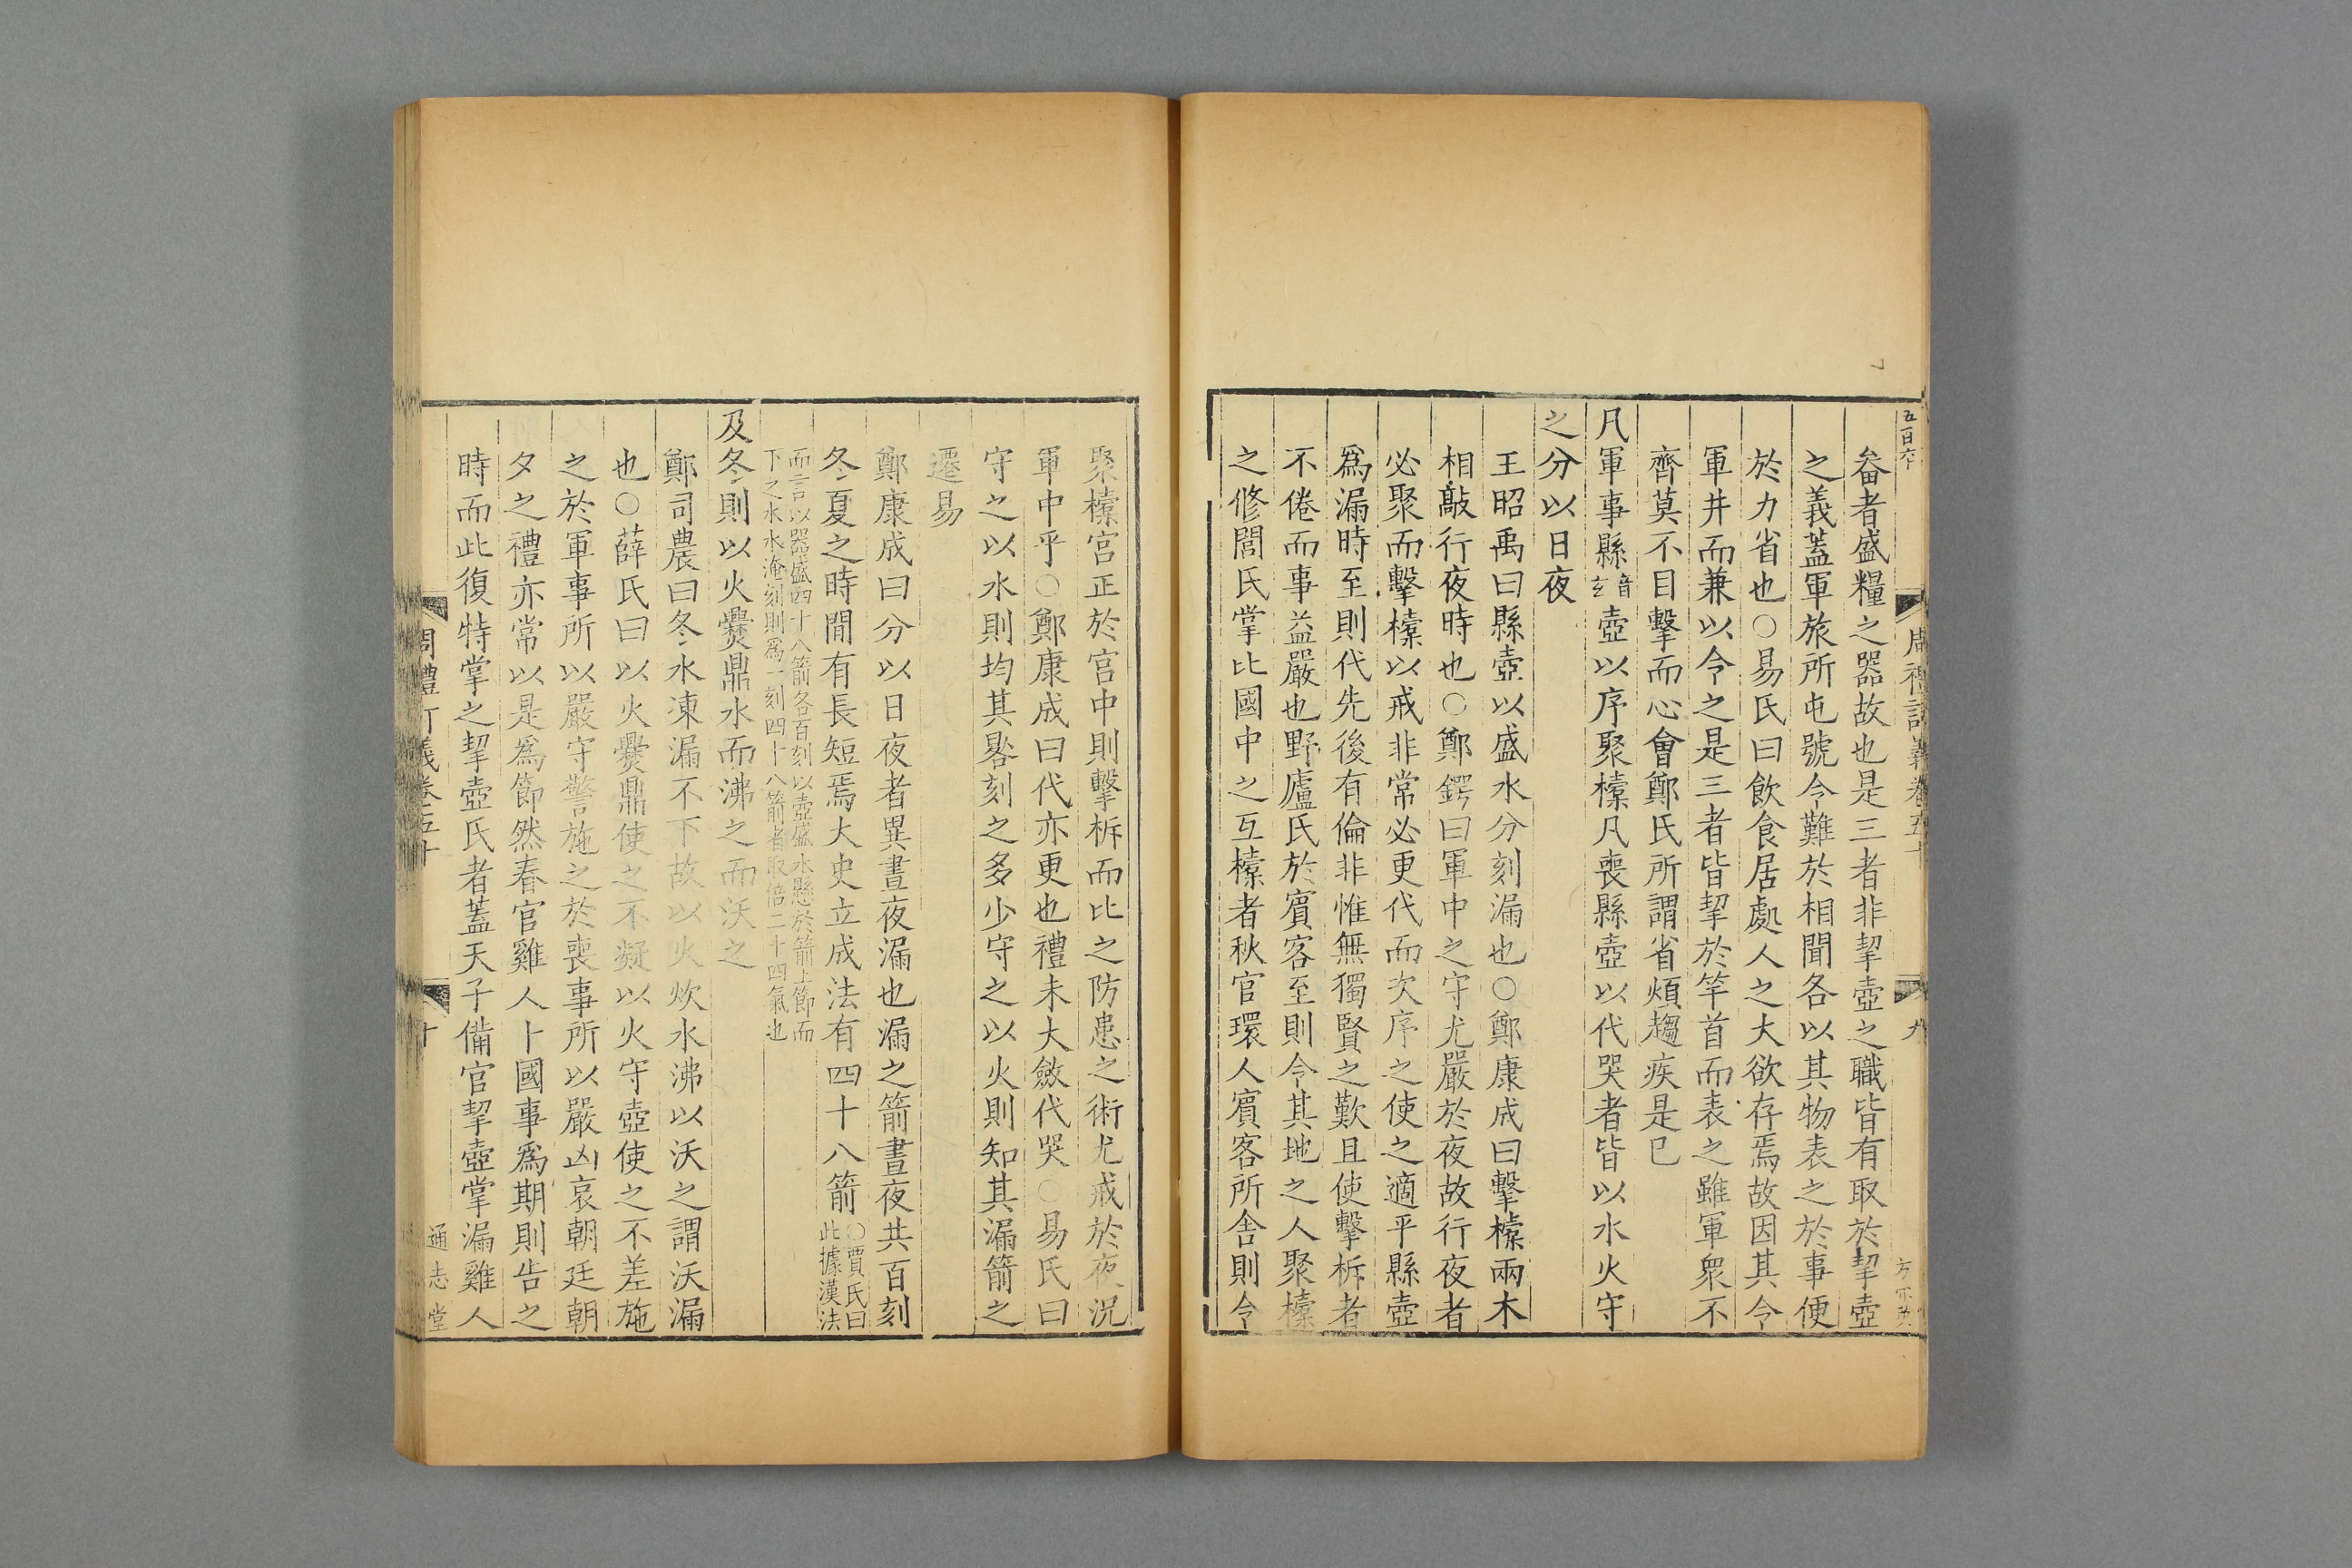 五百六十
周禮訂義卷五十
九
畚者盛糧之器故也是三者非挈壺之職皆有取於挈壺
之義蓋軍旅所屯號令難於相聞各以其物表之於事便
於力省也○易氏曰飲食居處人之大欲存焉故因其令
軍井而兼以令之是三者皆挈於竿首而表之雖軍衆不
齊莫不目擊而心會鄭氏所謂省煩趨疾是已
凡軍事縣音玄壺以序聚㯿凡喪縣壺以代哭者皆以水火守
之分以日夜
王昭禹曰縣壺以盛水分刻漏也○鄭康成曰擊㯿兩木
相敲行夜時也○鄭鍔曰軍中之守尤嚴於夜故行夜者
必聚而擊㯿以戒非常必更代而次序之使之適平縣壺
爲漏時至則代先後有倫非惟無獨賢之歎且使擊柝者
不倦而事益嚴也野廬氏於賓客至則令其地之人聚㯿
之修閭氏掌比國中之互㯿者秋官環人賓客所舍則令
聚㯿宮正於宮中則擊柝而比之防患之術尤戒於夜況
軍中乎○鄭康成曰代亦更也禮未大斂代哭○易氏曰
守之以水則均其晷刻之多少守之以火則知其漏箭之
遷易
鄭康成曰分以日夜者異晝夜漏也漏之箭晝夜共百刻
冬夏之時間有長短焉大史立成法有四十八箭○賈氏曰此據漢法
而言以器盛四十八箭各百刻以壺盛水懸於箭上節而
下之水水淹刻則爲一刻四十八箭者取倍二十四氣也
及冬則以火爨鼎水而沸之而沃之
鄭司農曰冬水凍漏不下故以火炊水沸以沃之謂沃漏
也○薛氏曰以火爨鼎使之不凝以火守壺使之不差施
之於軍事所以嚴守警施之於喪事所以嚴凶哀朝廷朝
夕之禮亦常以是爲節然春官雞人卜國事爲期則告之
時而此復特掌之挈壺氏者蓋天子備官挈壺掌漏雞人
周禮訂義卷五十
十
通志堂